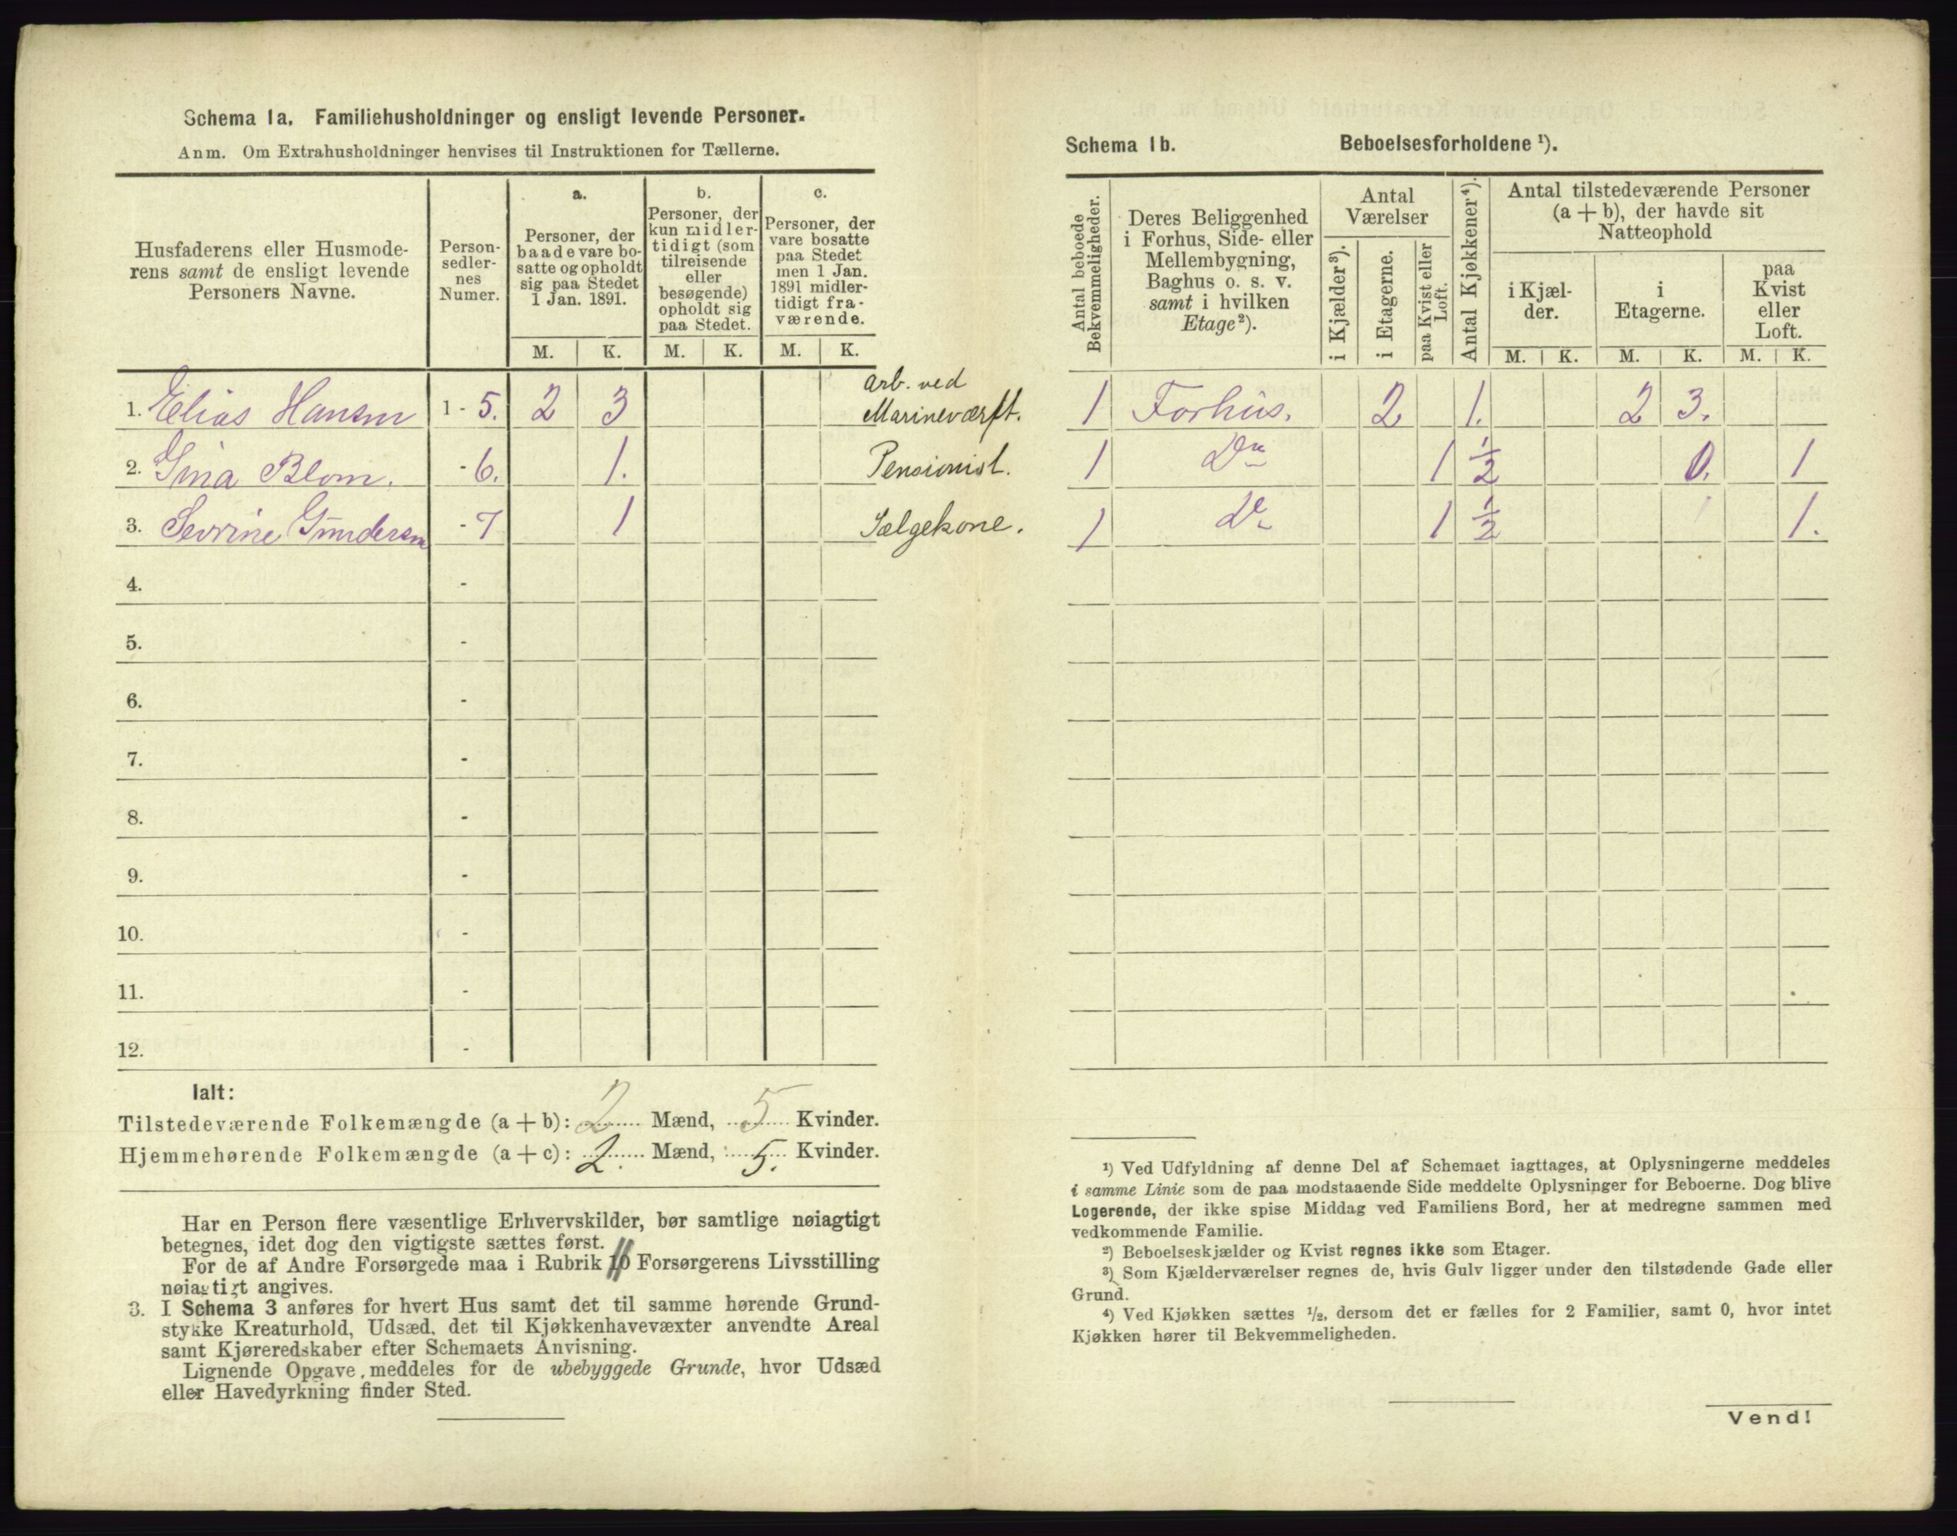 Schema 1a. Familiehusholdninger og ensligt levende Personer.
Anm. Om Extrahusholdninger henvises til Instruktionen for Tællerne.
Husfaderens eller Husmoderens samt de ensligt levende Personers Navne.
Personsedlernes Numer.
a.
Personer, der baade vare bosatte og opholdt sig paa Stedet 1 Jan. 1891.
b.
Personer, der kun midlertidigt (som tilreisende eller besøgende) opholdt sig paa Stedet.
c.
Personer, der vare bosatte paa Stedet men 1 Jan. 1891 midlertidigt fraværende.
M. K. M. K. M. K.
1. Elias Hansen 1 - 5. 2 3 Arb. ved Marineværft.
2. Gina Blom. - 6. 1. Pensionist.
3. Sevrine Gundersen - 7 1 Sælgekone.
4. -
5. -
6. -
7. -
8. -
9. -
10. -
11. -
12. -
Ialt:
Tilstedeværende Folkemængde (a + b): 2 Mænd, 5 Kvinder.
Hjemmehørende Folkemængde (a + c): 2. Mænd, 5. Kvinder.
Har en Person flere væsentlige Erhvervskilder, bør samtlige nøiagtigt
betegnes, idet dog den vigtigste sættes først.
For de af Andre Forsørgede maa i Rubrik 11 Forsørgerens Livsstilling
nøiagtigt angives.
3. I Schema 3 anføres for hvert Hus samt det til samme hørende Grund-
stykke Kreaturhold, Udsæd, det til Kjøkkenhavevæxter anvendte Areal
samt Kjøreredskaber efter Schemaets Anvisning.
Lignende Opgave meddeles for de ubebyggede Grunde, hvor Udsæd
eller Havedyrkning finder Sted.
Schema 1b. Beboelsesforholdene ¹).
Antal beboede Bekvemmeligheder.
Deres Beliggenhed i Forhus, Side- eller Mellembygning, Baghus o. s. v. samt i hvilken Etage²).
Antal Værelser
i Kjælder³).
i Etagerne.
paa Kvist eller Loft.
Antal Kjøkkener⁴).
Antal tilstedeværende Personer (a + b), der havde sit Natteophold
i Kjælder.
i Etagerne.
paa Kvist eller Loft.
M. K. M. K. M. K.
1 Forhus. 2 1. 2 3.
1 Do 1 ½ 0. 1
1 Do 1 ½ 1.
¹) Ved Udfyldning af denne Del af Schemaet iagttages, at Oplysningerne meddeles
i samme Linie som de paa modstaaende Side meddelte Oplysninger for Beboerne. Dog blive
Logerende, der ikke spise Middag ved Familiens Bord, her at medregne sammen med
vedkommende Familie.
²) Beboelseskjælder og Kvist regnes ikke som Etager.
³) Som Kjælderværelser regnes de, hvis Gulv ligger under den tilstødende Gade eller
Grund.
⁴) Ved Kjøkken sættes ½, dersom det er fælles for 2 Familier, samt 0, hvor intet
Kjøkken hører til Bekvemmeligheden.
Vend!